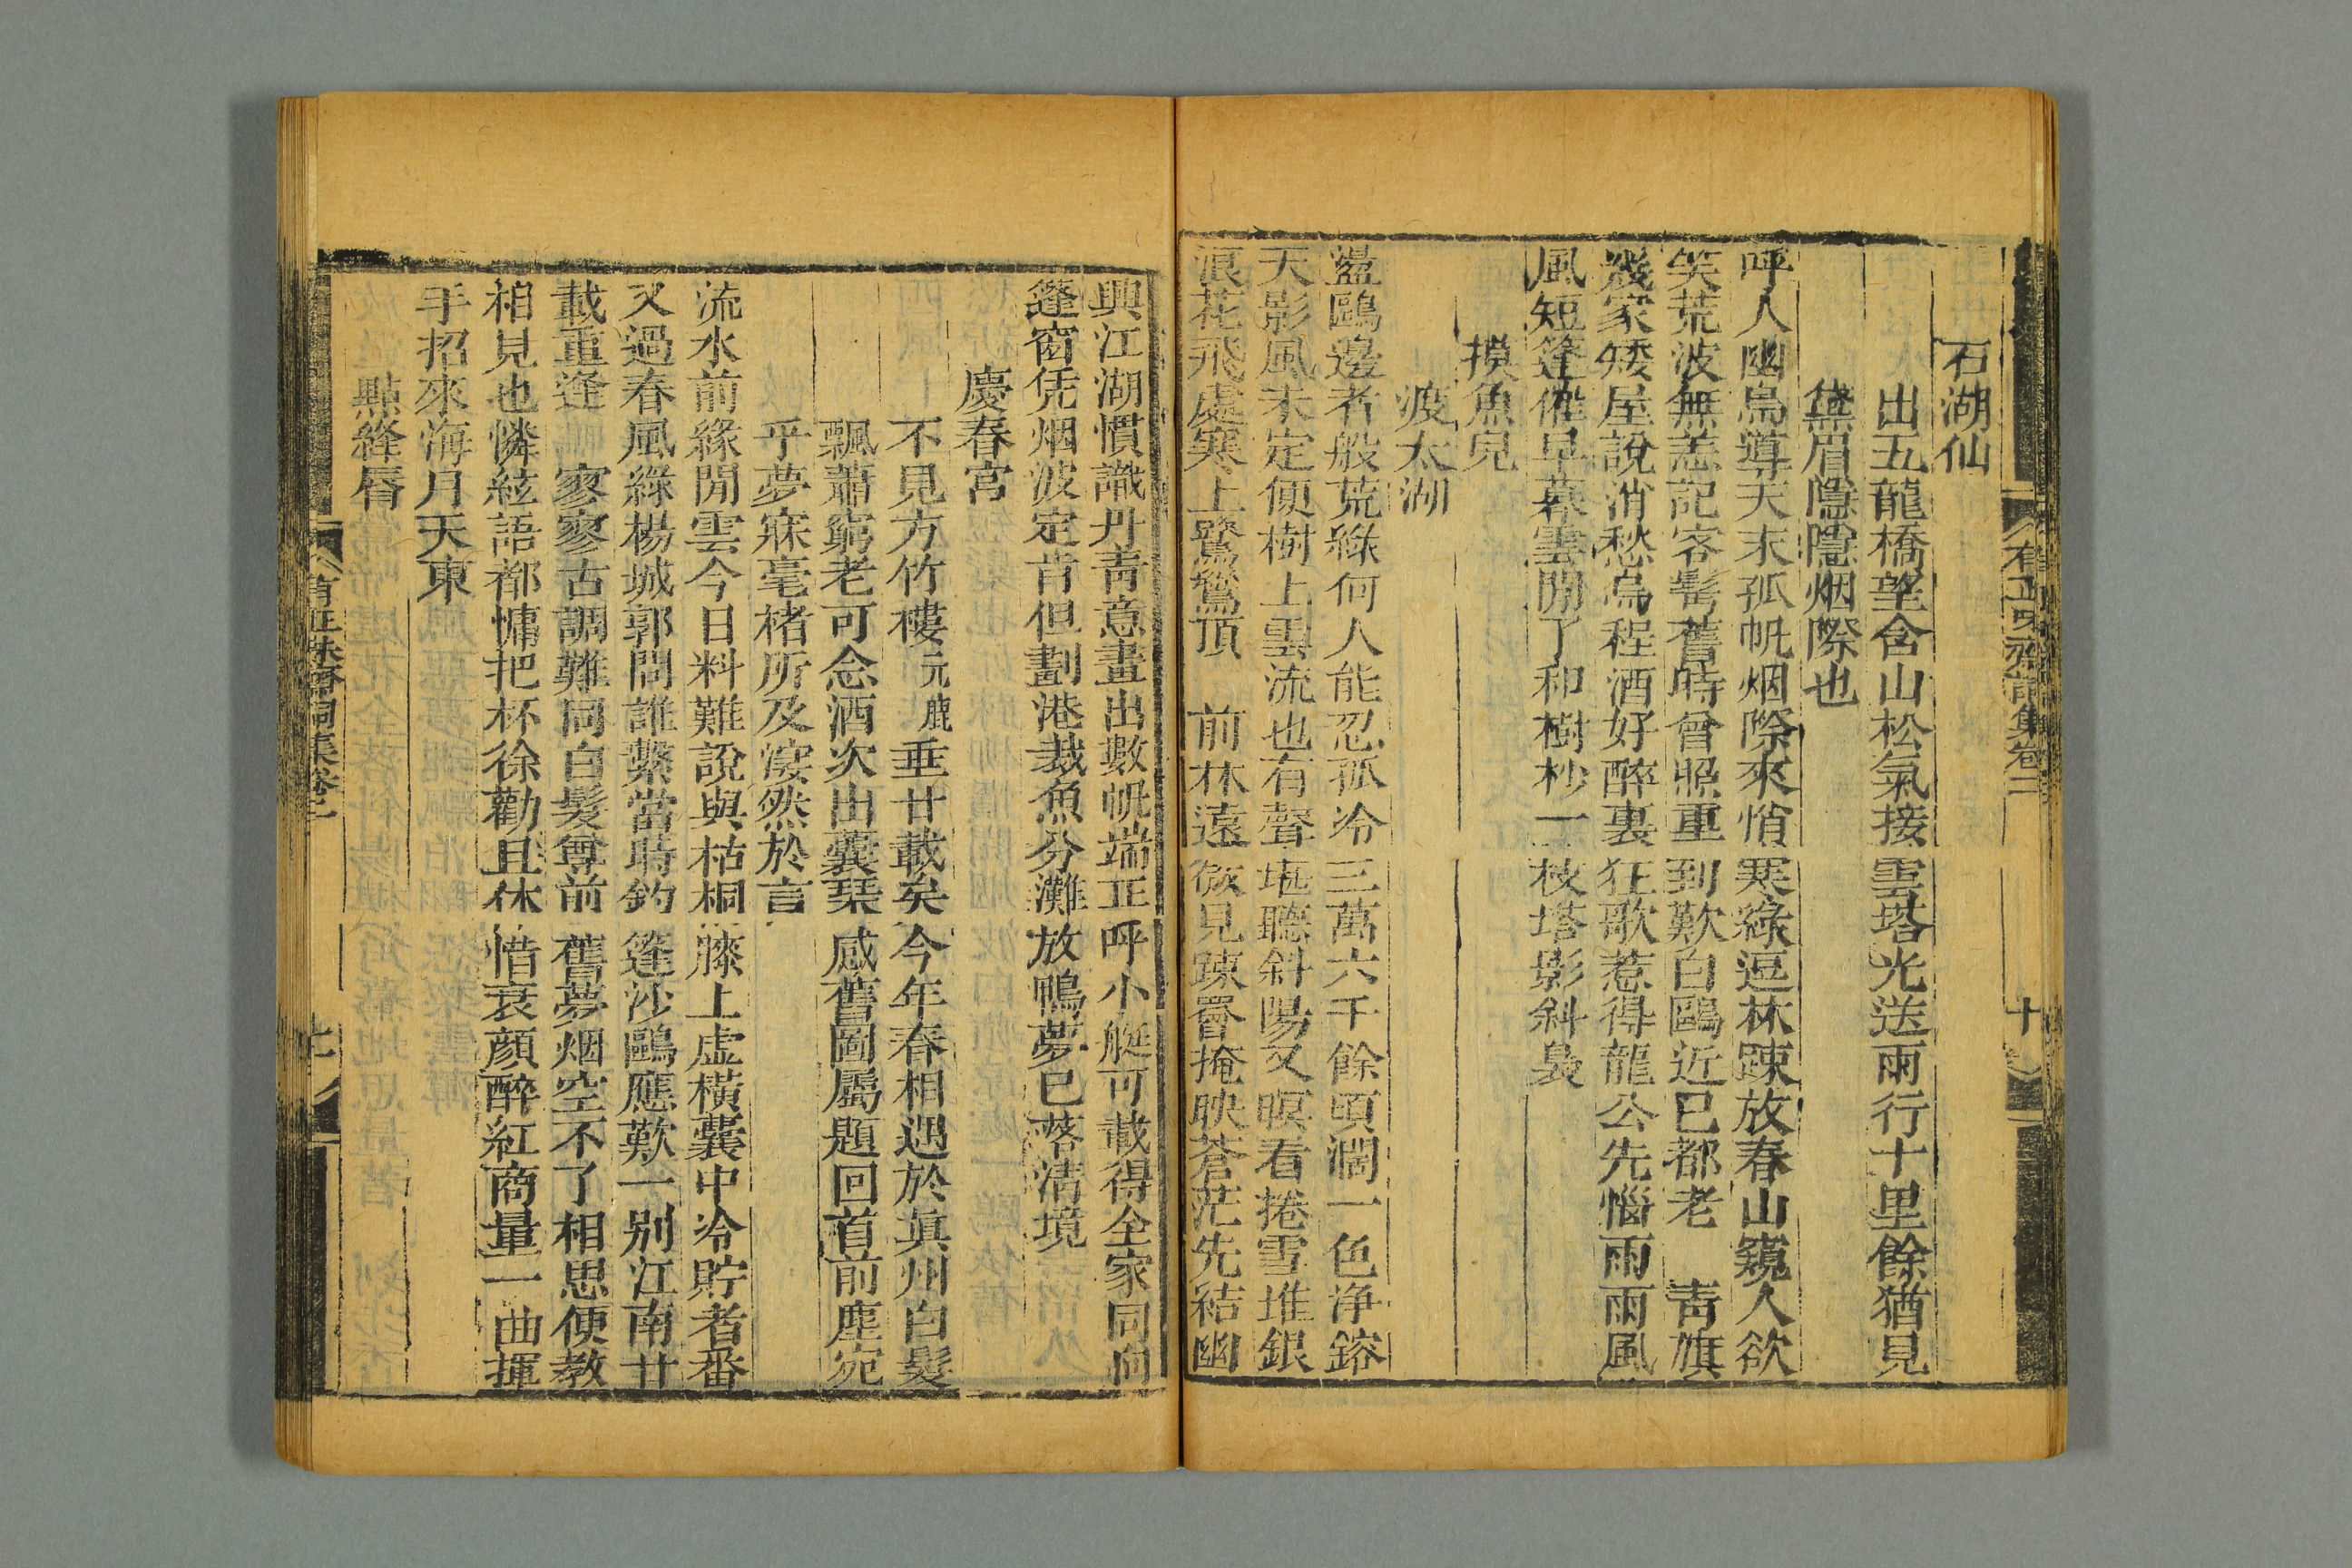 石湖仙
出五龍橋望含山松氣接雲塔光送雨行十里餘猶見
黛眉隱隱烟際也
呼人幽鳥導天末孤帆烟際來悄寒綠逗林踈放春山窺人欲
笑荒波無恙記客髩舊時曾照重到歎白鷗近已都老　靑旗
幾家矮屋說消愁烏程酒好醉裏狂歌惹得龍公先惱雨雨風
風短篷催早暮雲閒了和樹杪一枝塔影斜裊
摸魚兒
渡太湖
盪鷗邊者般荒綠何人能忍孤冷三萬六千餘頃濶一色净鎔
天影風未定便樹上雲流也有聲堪聽斜陽又暝看捲雪堆銀
浪花飛處寒上鷺鷥頂　前林遠微見踈罾掩映蒼茫先結幽
有正味齋詞集卷二　十
興江湖慣識丹靑意畫出數帆端正呼小艇可載得全家同向
篷窗凭烟波定肯但劃港裁魚分灘放鴨夢已落清境
慶春宮
不見方竹樓元鹿垂廿載矣今年春相遇於眞州白髮
飄蕭窮老可念酒次出囊琹感舊圖屬題回首前塵宛
乎夢寐毫楮所及淒然於言
流水前緣閒雲今日料難說與枯桐膝上虛橫囊中冷貯者番
又過春風綠楊城郭問誰繫當時釣篷沙鷗應歎一別江南廿
載重逢　寥寥古調難同白髮尊前舊夢烟空不了相思便教
相見也憐絃語都慵把杯徐勸且休惜衰顔醉紅商量一曲揮
手招來海月天東
點絳脣
有正味齋詞集卷二　十